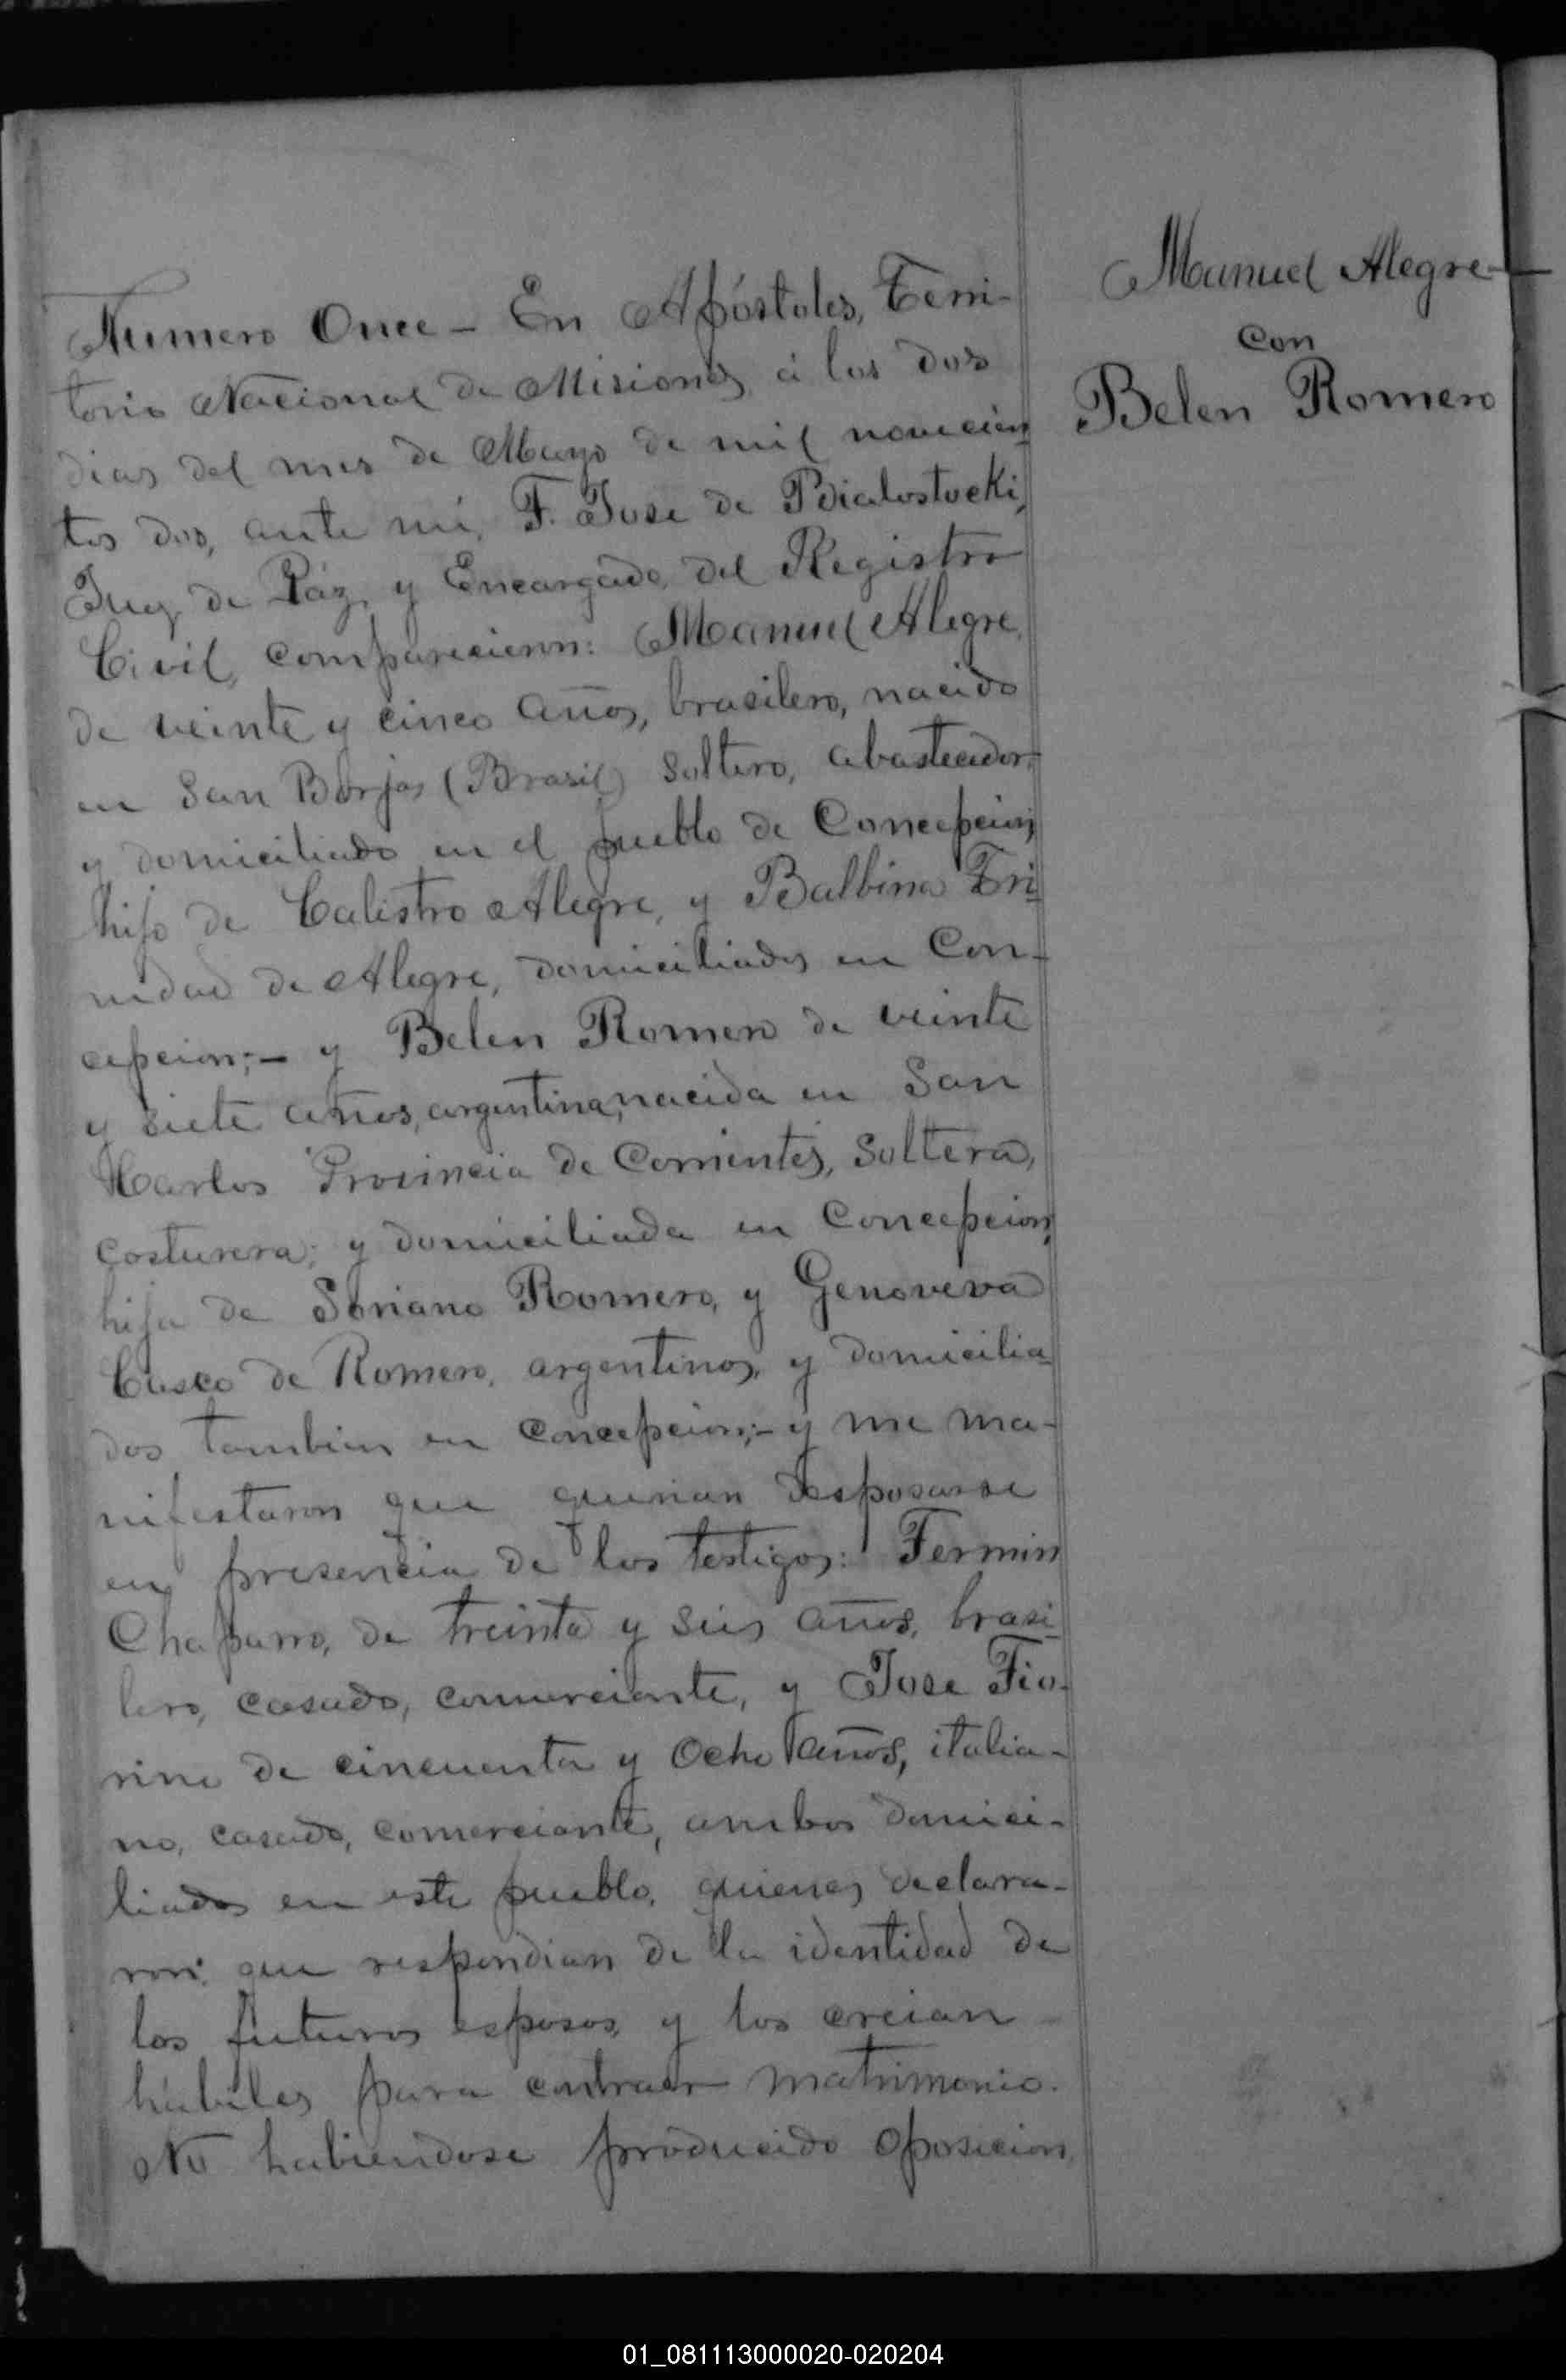 Numero Once – En Apóstoles, Terri-
torio Nacional de Misiones, á los dos
dias del mes de Mayo de mil novecien
tos dos, ante mi, F. Jose de Bialostocki,
Juez de Páz, y Encargado del Registro
Civil, comparecieron: Manuel Alegre,
de veinte y cinco años, brasilero, nacido
en San Borjas (Brasil) soltero, abastecedor,
y domiciliado en el pueblo de Concepcion,
hijo de Calistro Alegre, y Balbina Tri
nidad de Alegre, domiciliados en Con-
cepcion; – y Belen Romero de veinte
y siete años, argentina, nacida en San
Carlos Provincia de Corrientes, soltera,
costurera; y domiciliada en Concepcion,
hija de Soriano Romero, y Genoveva
Casco de Romero, argentinos, y domicilia
dos tambien en Concepcion; – y me ma-
nifestaron que querian desposarse
en presencia de los testigos: Fermin
Chaparro, de treinta y seis años, brasi
lero, casado, comerciante, y Jose Fio-
rino de cincuenta y ocho años, italia-
no, casado, comerciante, ambos domici-
liados en este pueblo, quienes declara-
ron: que respondian de la identidad de
los futuros esposos, y los creian
hábiles para contraer matrimonio.
No habiendose producido oposicion,
Manuel Alegre
con
Belen Romero
01_081113000020-020204